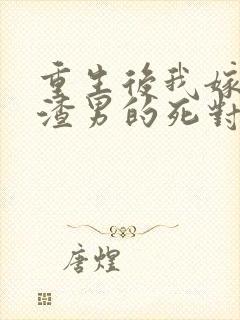 重生後我嫁
渣男的死對
唐煌